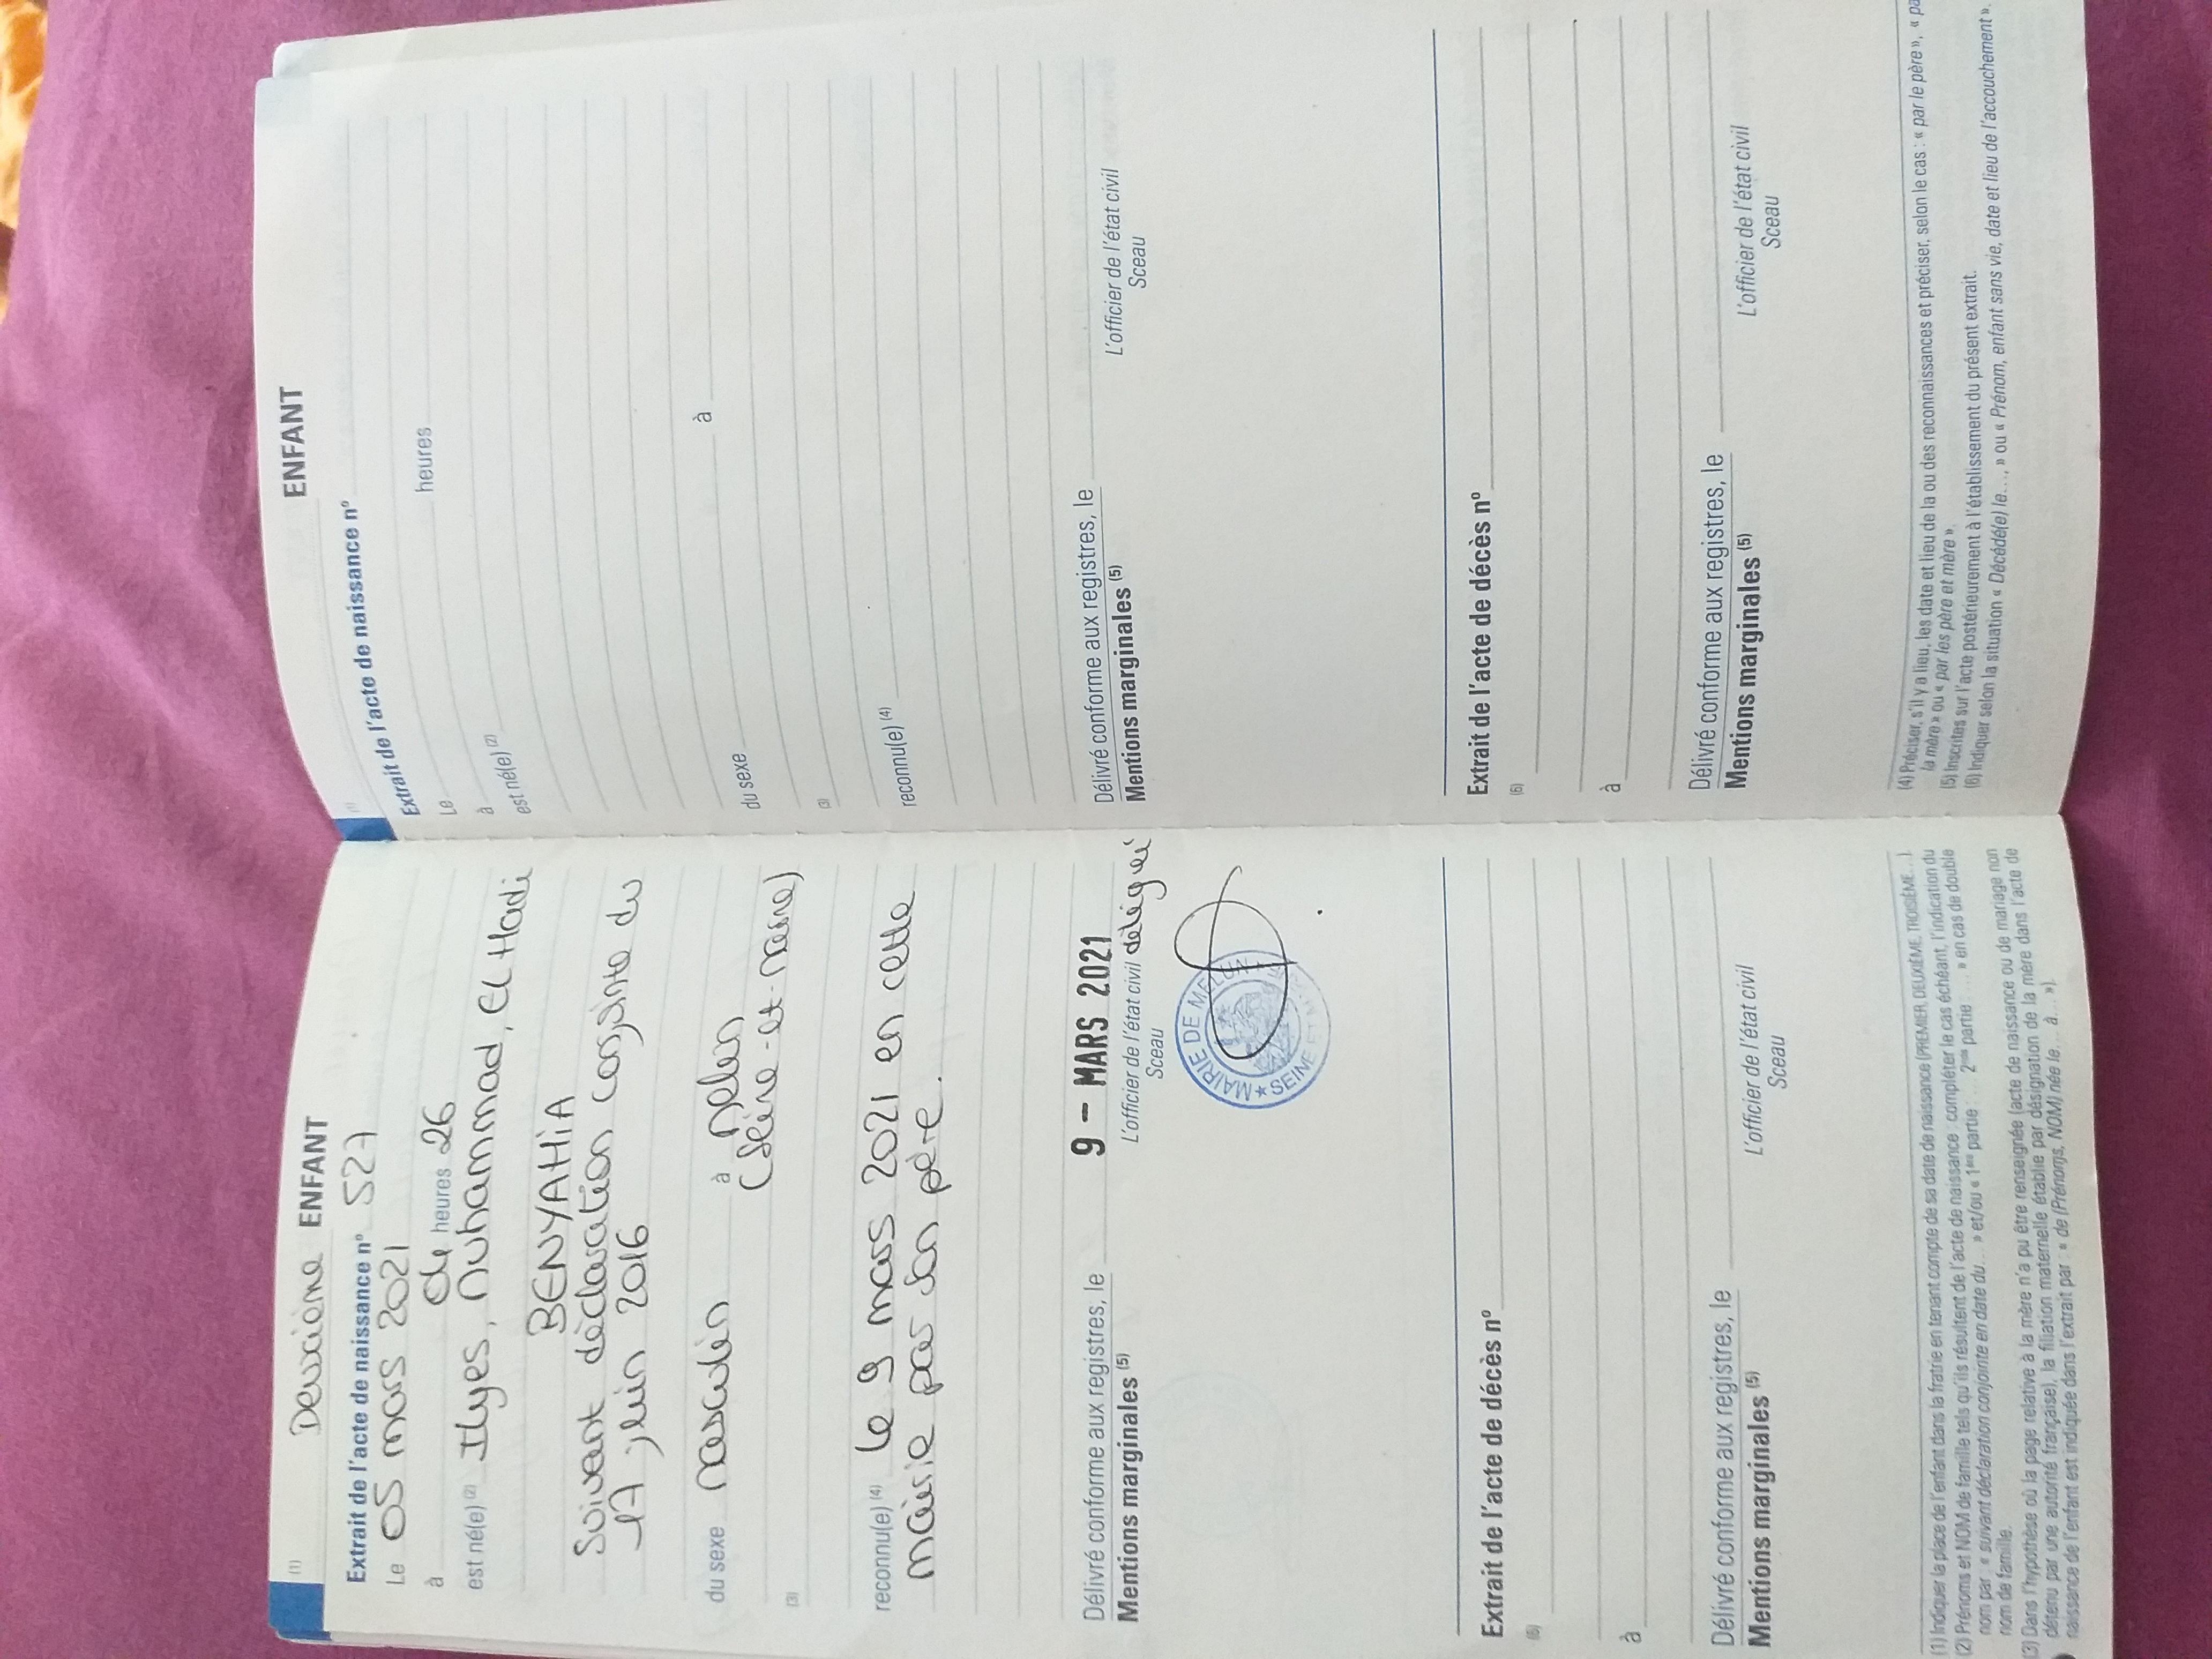 (1) Deuxième ENFANT
Extrait de l'acte de naissance nº 527
Le 05 mars 2021
à 04 heures 26
est né(e) (2) Ilyes, Muhammad, El Hadi
BENYAHIA
Suivant déclaration conjointe du
17 juin 2016
du sexe masculin à Melun
(3) (Seine-et-Marne)
reconnu(e) (4) le 9 mars 2021 en cette
mairie par son père.
Délivré conforme aux registres, le 9 - MARS 2021
Mentions marginales (5) L'officier de l'état civil délégué
Sceau
MAIRIE DE MELUN ★ SEINE ET
Extrait de l'acte de décès nº
(6)
à
Délivré conforme aux registres, le
Mentions marginales (5) L'officier de l'état civil
Sceau
(1) Indiquer la place de l'enfant dans la fratrie en tenant compte de sa date de naissance (PREMIER, DEUXIÈME, TROISIÈME…).
(2) Prénoms et NOM de famille tels qu'ils résultent de l'acte de naissance : compléter le cas échéant, l'indication du
nom par : « suivant déclaration conjointe en date du… » et/ou « 1ère partie : … 2ème partie … » en cas de double
nom de famille.
(3) Dans l'hypothèse où la page relative à la mère n'a pu être renseignée (acte de naissance ou de mariage non
détenu par une autorité française), la filiation maternelle établie par désignation de la mère dans l'acte de
naissance de l'enfant est indiquée dans l'extrait par : « de (Prénoms, NOM) née le… à… »).
(1) ENFANT
Extrait de l'acte de naissance nº
Le
à heures
est né(e) (2)
du sexe à
(3)
reconnu(e) (4)
Délivré conforme aux registres, le
Mentions marginales (5) L'officier de l'état civil
Sceau
Extrait de l'acte de décès nº
(6)
à
Délivré conforme aux registres, le
Mentions marginales (5) L'officier de l'état civil
Sceau
(4) Préciser, s'il y a lieu, les date et lieu de la ou des reconnaissances et préciser, selon le cas : « par le père », « pa
la mère » ou « par les père et mère ».
(5) Inscrites sur l'acte postérieurement à l'établissement du présent extrait.
(6) Indiquer selon la situation « Décédé(e) le…, » ou « Prénom, enfant sans vie, date et lieu de l'accouchement ».